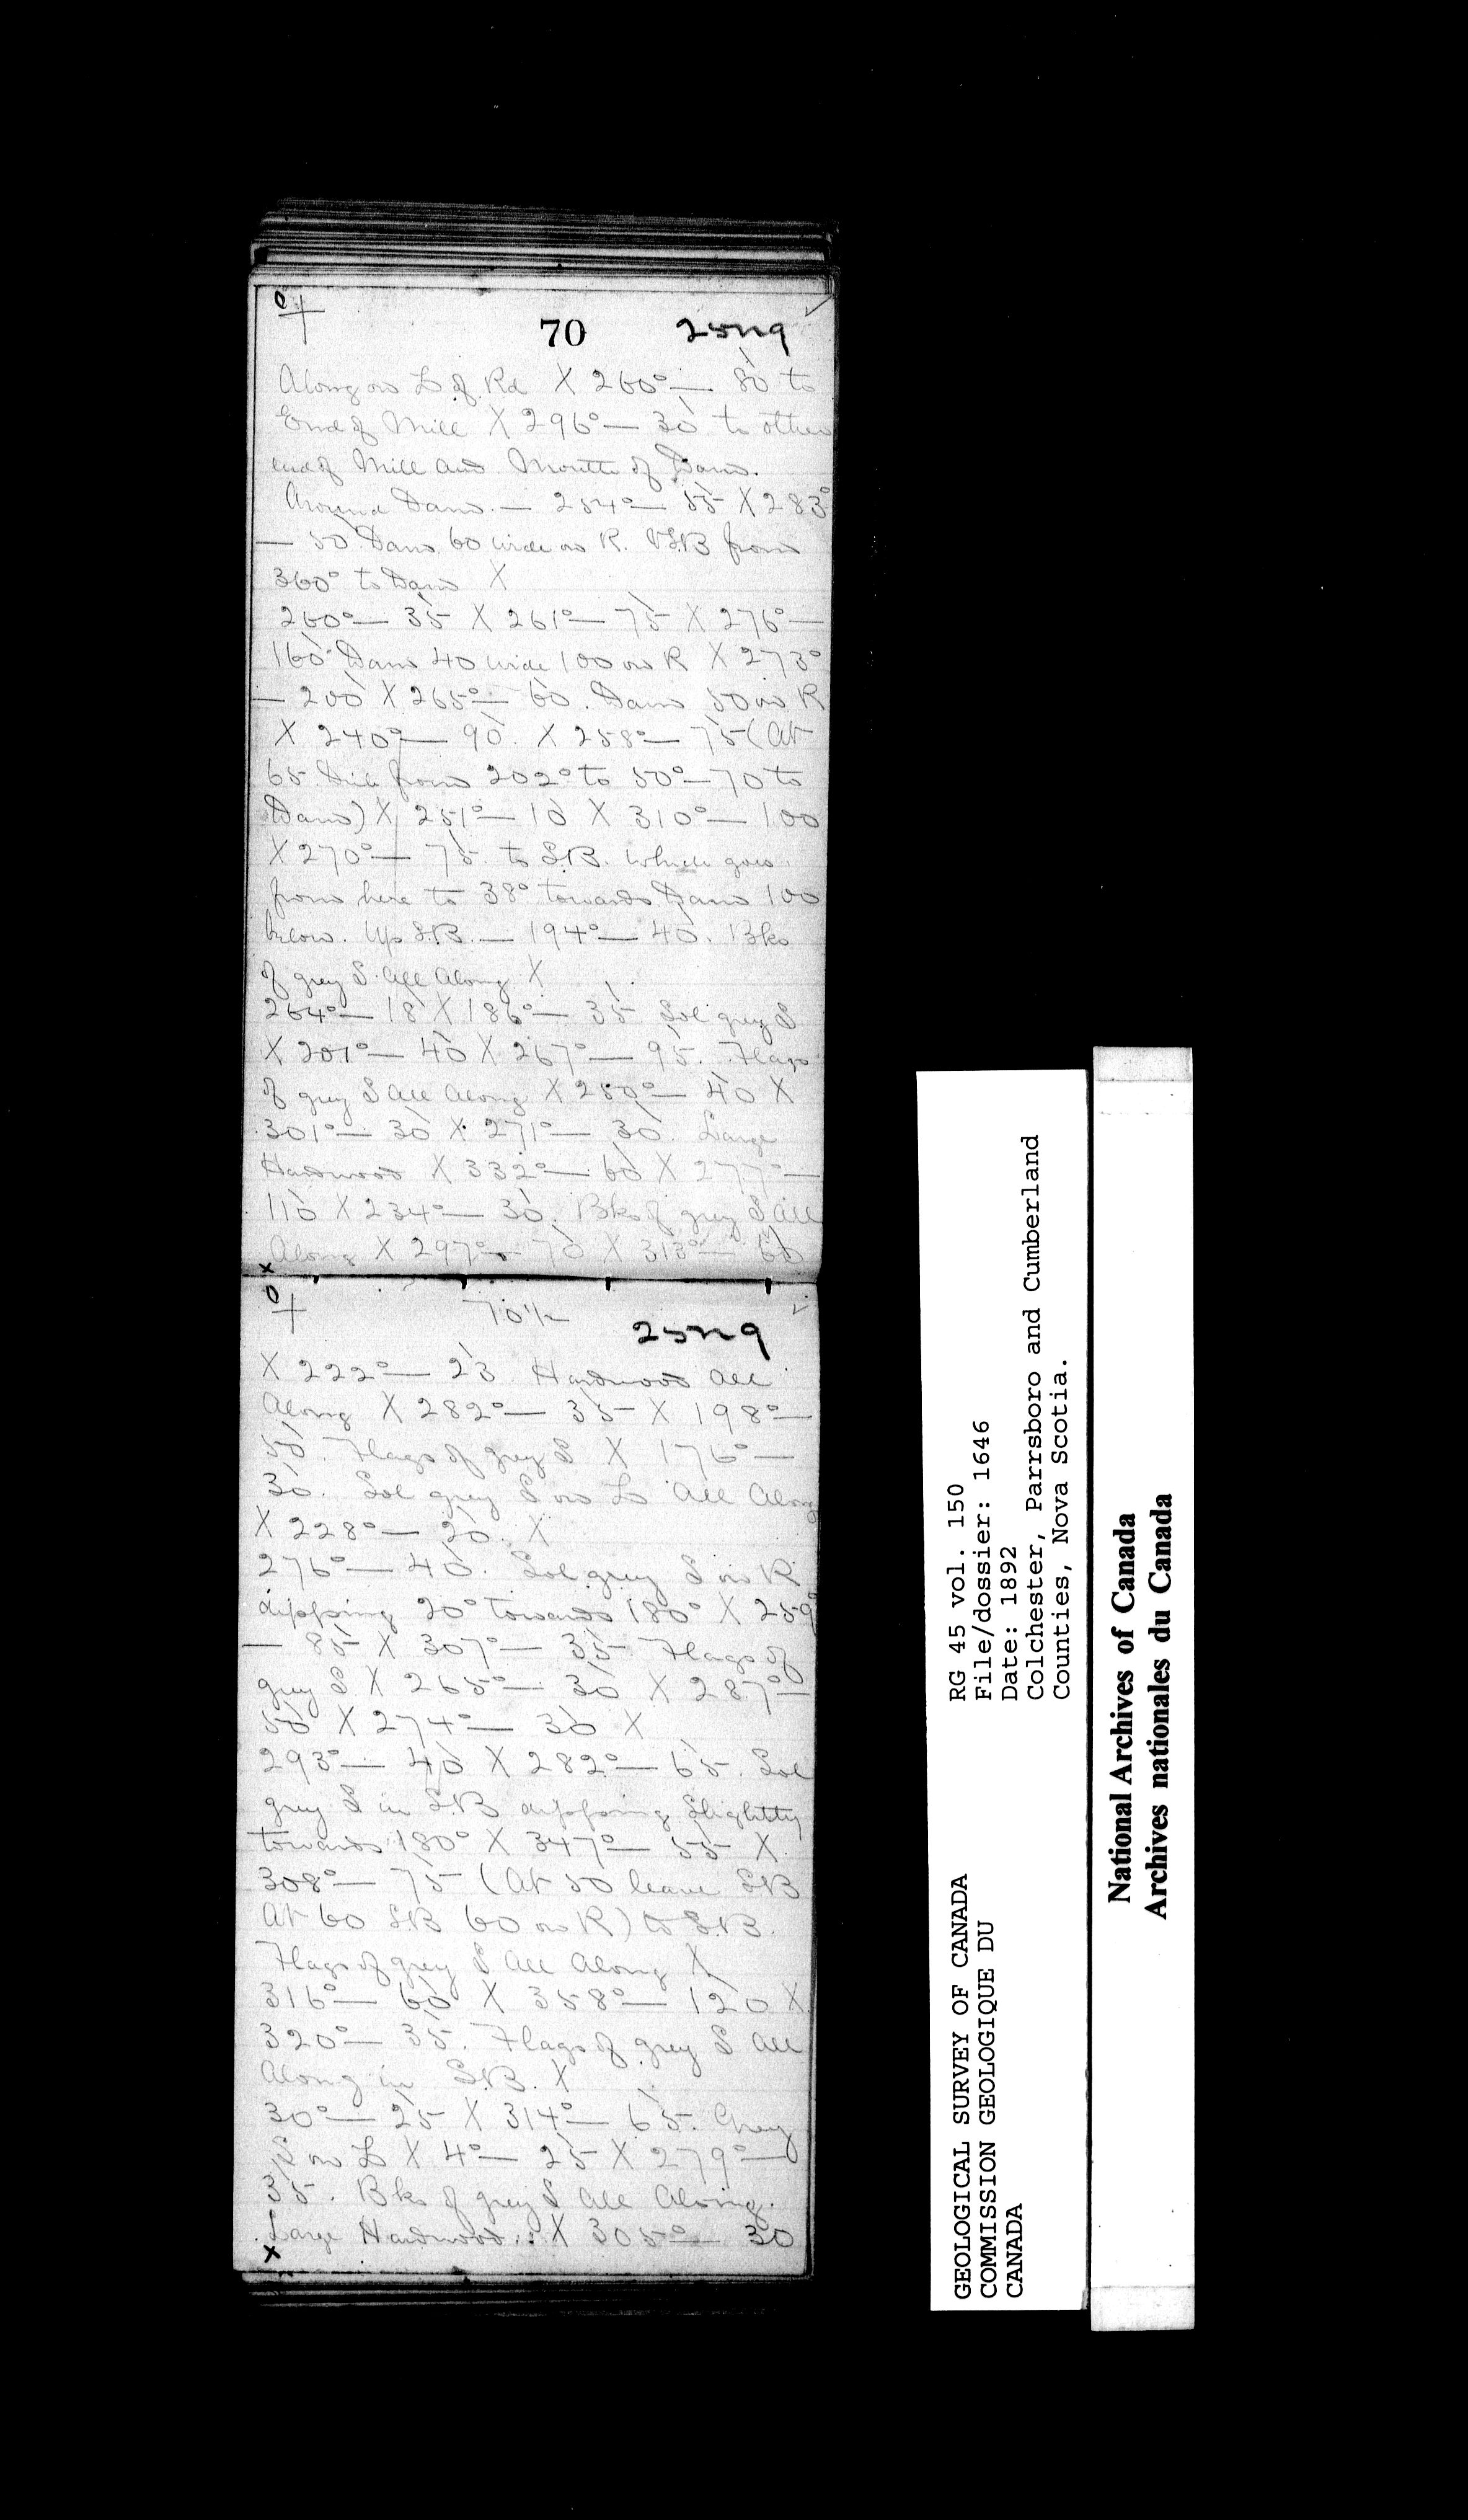 70
Along on L of Rd X 260°— 80 to
End of Mill X 296°— 30 to other
end of Mill and Mouth of Dam.
Around Dam. — 254°— 55 X 283°
— 50. Dam 60 wide on R. from
360° to Dam X
260°— 35 X 261°— 75 X 276°—
160. Dam 40 wide 100 on R X 273°
— 200 X 265°— 60. Dam 50 on R
X 240°— 90. X 258°— 75 (At
65 from 202° to 50°—70 to
Dam) X 251°— 10 X 310°— 100
X 270°— 75. to S.B. which goes
from here to 38° towards Dam 100
below. Up S.B. — 194°— 40. Bks
of grey S. All Along X
264°— 18 X 186°— 35. Sol grey S
X 201°— 40 X 267°— 95. Flags
of grey S All Along X 250°— 40 X
301°— 30 X 271°— 30. Large
Hardwood X 332°— 60 X 277°—
110 X 234°— 30. Bks of grey S All
Along X 297°— 70 X 313°— 60
70½
X 222°— 23. Hardwood All
Along X 282°— 35 X 198°—
50. Flags of grey S X 176°—
30. Sol grey S on L All Along
X 228°— 20. X
276°— 40. Sol grey S on R
dipping 20° towards 180° X 259°
— 85 X 307°— 35. Flags of
grey S X 265°— 30 X 287°—
50 X 274°— 30 X
293°— 40 X 282°— 65. Sol
grey S in S.B dipping Slightly
towards 180° X 347°— 55 X
308°— 75 (At 50 leave SB
At 60 SB 60 on R) to S.B.
Flags of grey S All Along X
316°— 60 X 358°— 120 X
320°— 35. Flags of grey S All
Along in S.B. X
30°— 25 X 314°— 65. Grey
S on L X 4°— 25 X 279°—
35. Bks of grey S All Along.
Large Hardwood. X 305°— 30
GEOLOGICAL SURVEY OF CANADA
COMMISSION GEOLOGIQUE DU
CANADA
RG 45 vol. 150
File/dossier: 1646
Date: 1892
Colchester, Parrsboro and Cumberland
Counties, Nova Scotia.
National Archives of Canada
Archives nationales du Canada